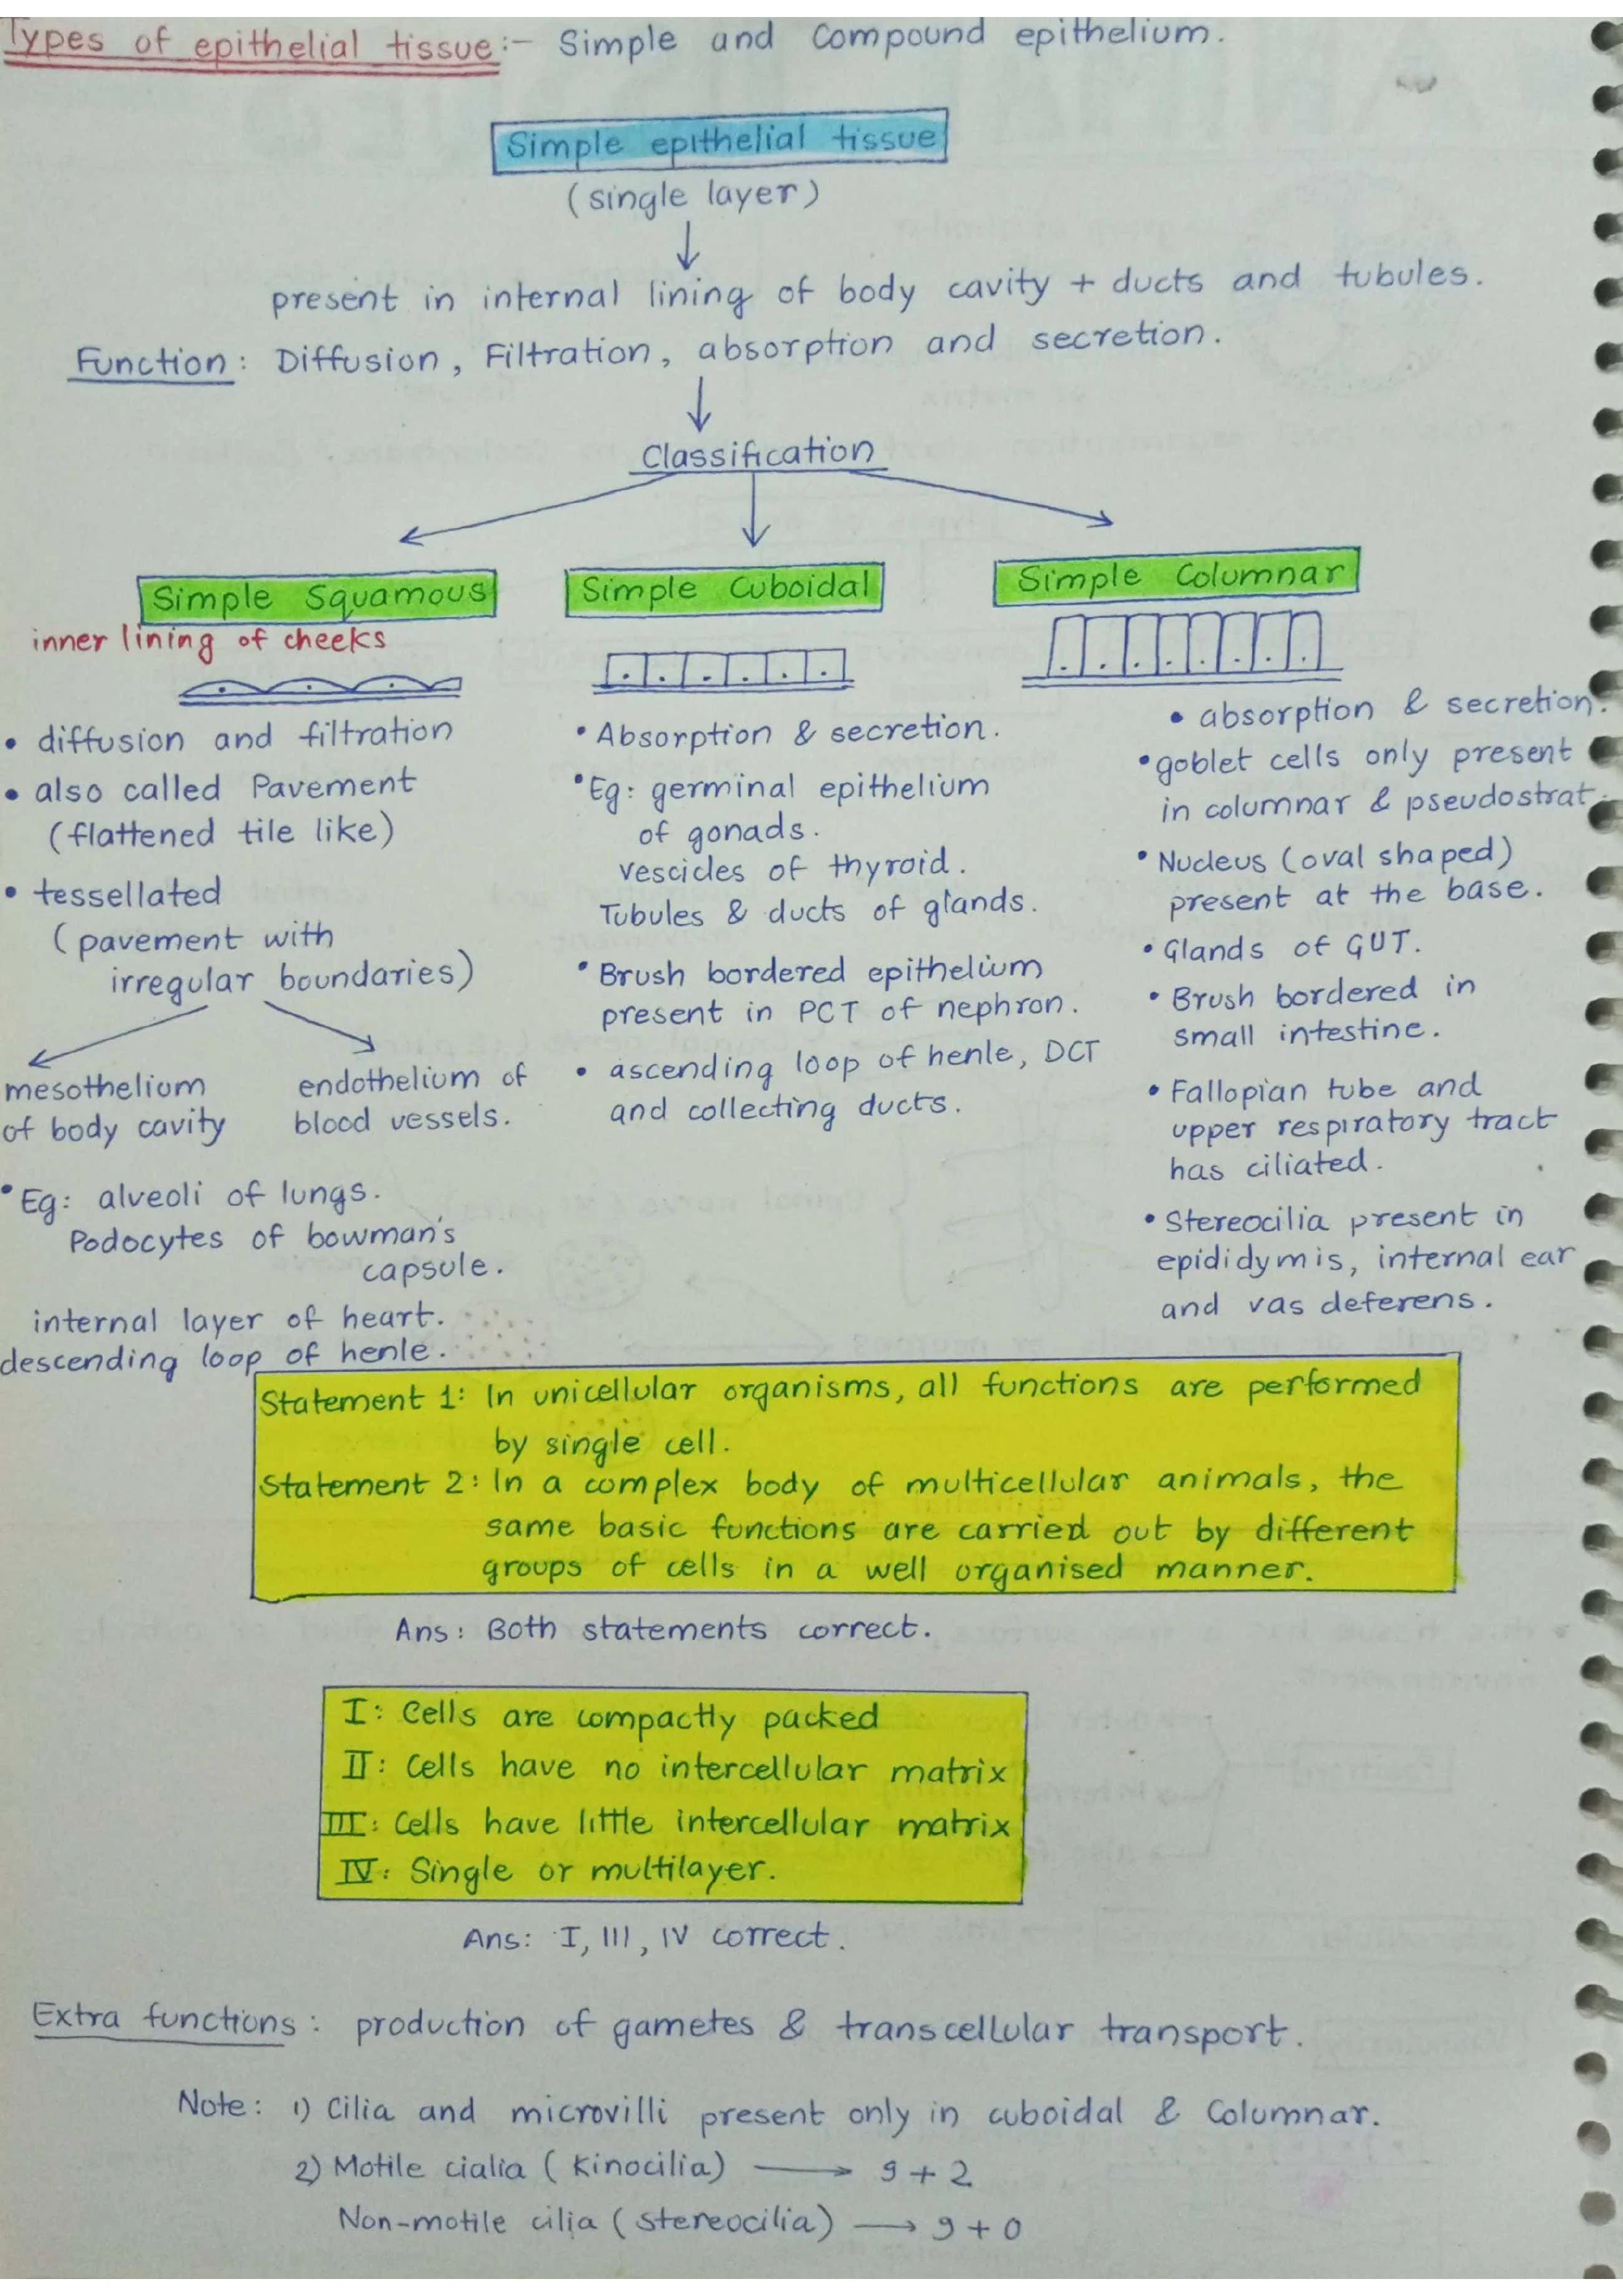 Types of epithelial tissue:- Simple and compound epithelium.
Simple epithelial tissue
(single layer)
present in internal lining of body cavity + ducts and tubules.
Function: Diffusion, Filtration, absorption and secretion.
Classification
Simple Squamous
inner lining of cheeks
• diffusion and filtration
• also called Pavement
(flattened tile like)
• tessellated
(pavement with
irregular boundaries)
mesothelium
of body cavity
endothelium of
blood vessels.
• Eg: alveoli of lungs.
Podocytes of bowman's
capsule.
internal layer of heart.
descending loop of henle.
Simple Cuboidal
• Absorption & secretion.
• Eg: germinal epithelium
of gonads.
vescicles of thyroid.
Tubules & ducts of glands.
• Brush bordered epithelium
present in PCT of nephron.
• ascending loop of henle, DCT
and collecting ducts.
Simple Columnar
• absorption & secretion.
• goblet cells only present
in columnar & pseudostrat.
• Nucleus (oval shaped)
present at the base.
• Glands of GUT.
• Brush bordered in
small intestine.
• Fallopian tube and
upper respiratory tract
has ciliated.
• Stereocilia present in
epididymis, internal ear
and vas deferens.
Statement 1: In unicellular organisms, all functions are performed
by single cell.
Statement 2: In a complex body of multicellular animals, the
same basic functions are carried out by different
groups of cells in a well organised manner.
Ans: Both statements correct.
I: Cells are compactly packed
II: Cells have no intercellular matrix
III: Cells have little intercellular matrix
IV: Single or multilayer.
Ans: I, III, IV correct.
Extra functions: production of gametes & transcellular transport.
Note: 1) Cilia and microvilli present only in cuboidal & Columnar.
2) Motile cialia (Kinocilia) ⟶ 9+2
Non-motile cilia (stereocilia) ⟶ 9+0